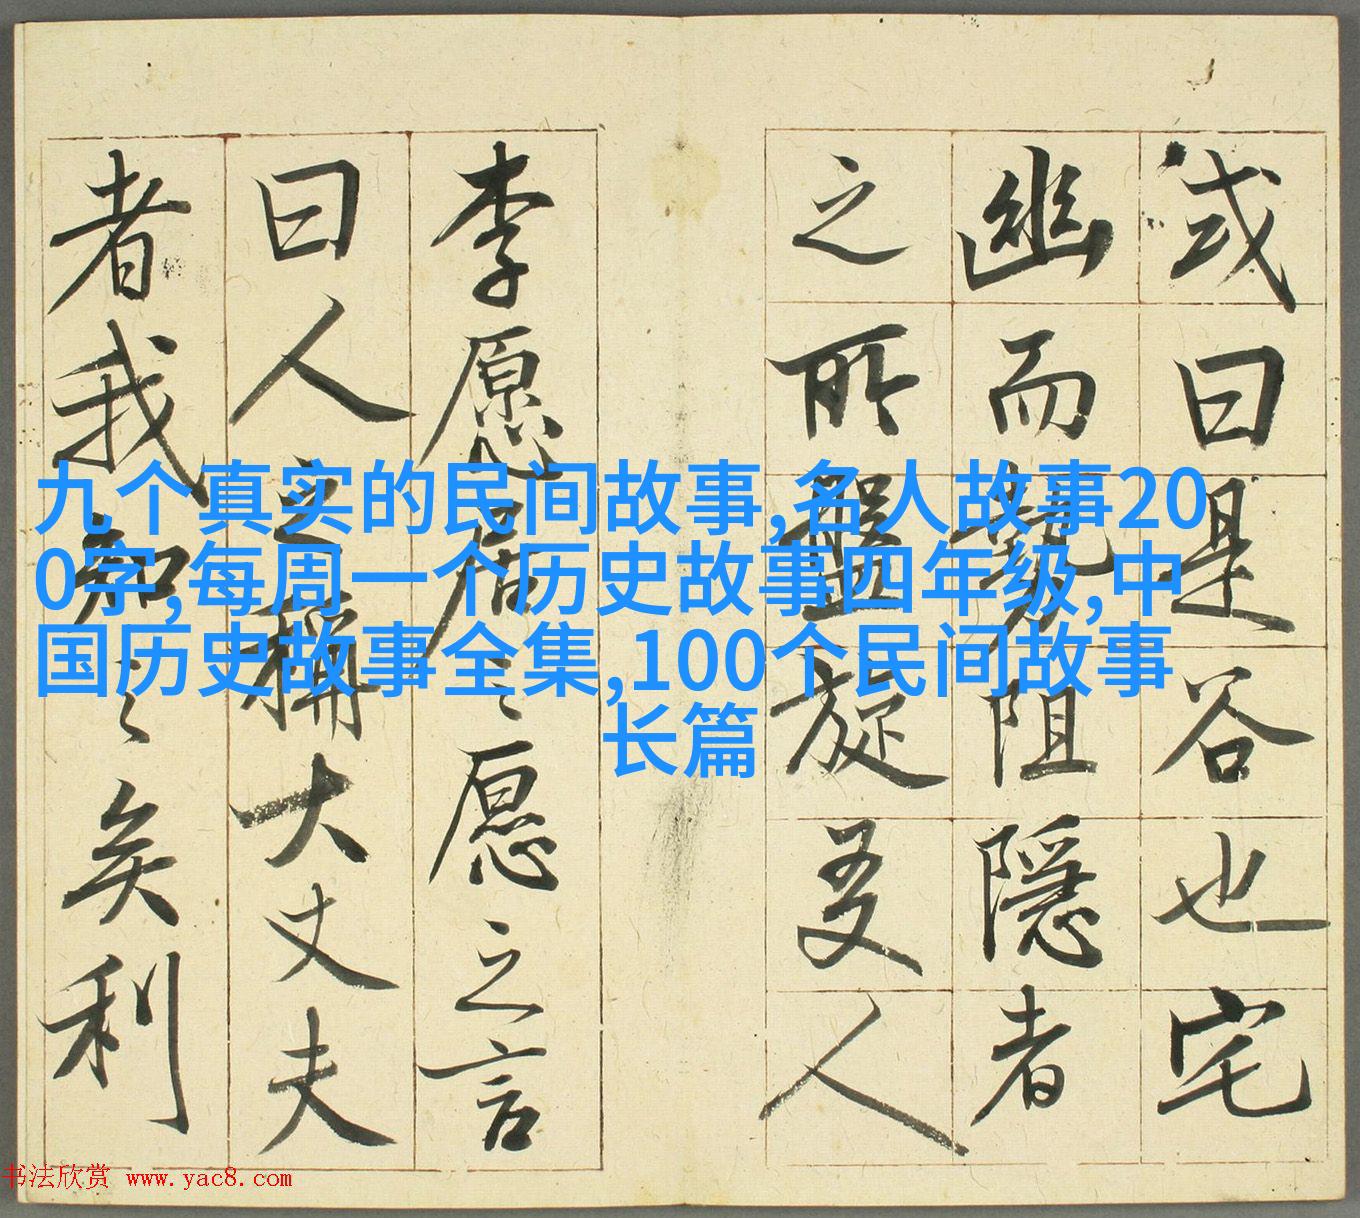 或曰是谷也宅
幽而勢阻隱者
之所盤旋友人
李愿居之愿之言
曰人之稱大丈夫
者我知之矣利
九个真实的民间故事,名人故事20
0字,每周一个历史故事四年级,中
国历史故事全集,100个民间故事
长篇
书法欣赏 www.yac8.com